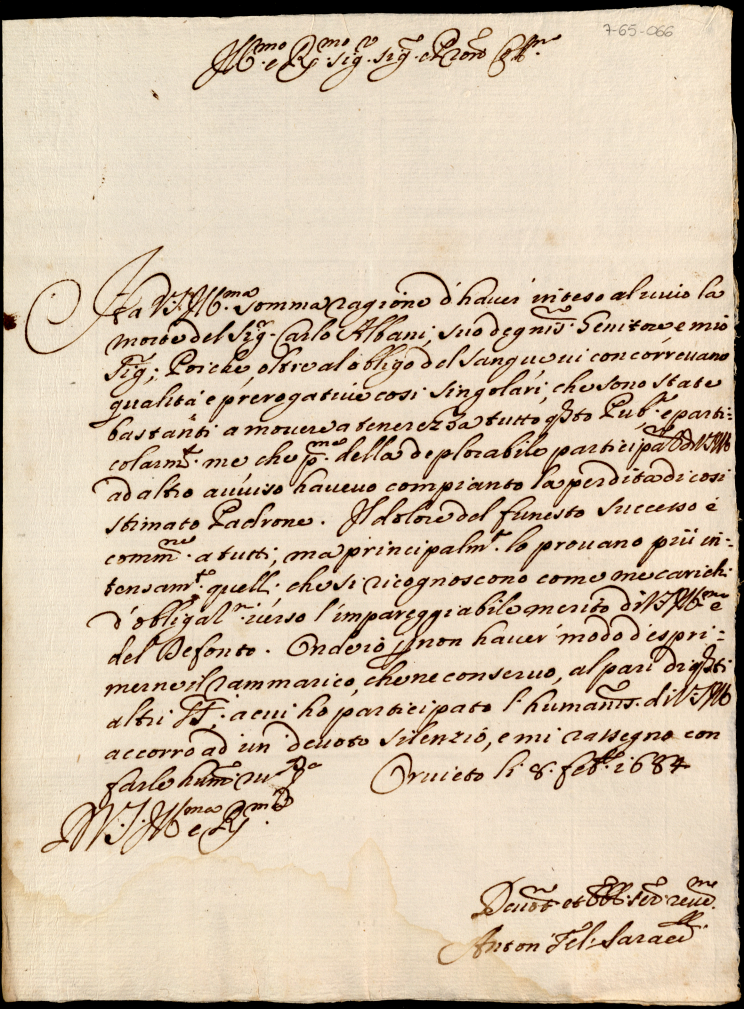 7-65-066
Ill.mo e R.mo Sig.r Sig. e Pron Col.mo
Ha V.S. Ill.ma somma ragione d'haver inteso al vivo la
morte del Sig.r Carlo Albani, suo degnis.o Genitore e mio
Sig.; Poiche, oltre al obligo del sangue vi concorrevano
qualità e prerogative così singolari, che sono state
bastanti a movere a tenerezza tutto q̃sto Pub.o, e parti=
colarm.te me che p.a della deplorabile participa.ne di V.S. Ill
ad altro avviso havevo compianto la perdita di così
stimato Padrone. Il dolore del funesto successo è
comm.ne a tutti, ma principalm.te lo provano più in=
tensam.te quelli che si ricognoscono come me carichi
d'obligat.ni verso l'impareggiabile merito di V.S. Ill.ma e
del Defonto. Ond'io p non haver modo d'espri=
merne il rammarico, che ne conservo, al pari di q̃sti
altri SS. a cui ho participato l'humanis. di V.S. Ill
accorro ad un devoto silenzio, e mi rassegno con
farle hum.a riv.za Orvieto li 8. feb. 1684
D V.S. Ill.ma e R.ma
Devot.mo et Obl. Ser. reve.
Anton Fel. Saraci